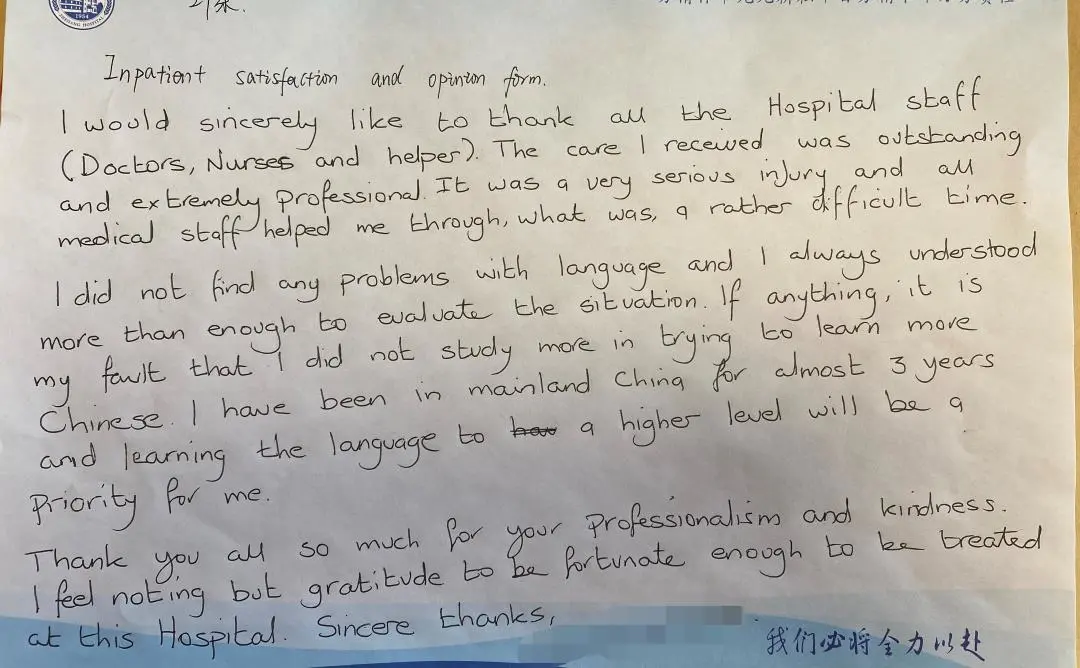 1954
Inpatient satisfaction and opinion form.
I would sincerely like to thank all the Hospital staff
(Doctors, Nurses and helper). The care I received was outstanding
and extremely professional. It was a very serious injury and all
medical staff helped me through, what was, a rather difficult time.
I did not find any problems with language and I always understood
more than enough to evaluate the situation. If anything, it is
my fault that I did not study more in trying to learn more
Chinese. I have been in mainland China for almost 3 years
and learning the language to a higher level will be a
priority for me.
Thank you all so much for your professionalism and kindness.
I feel noting but gratitude to be fortunate enough to be treated
at this Hospital. Sincere thanks,
我们必将全力以赴